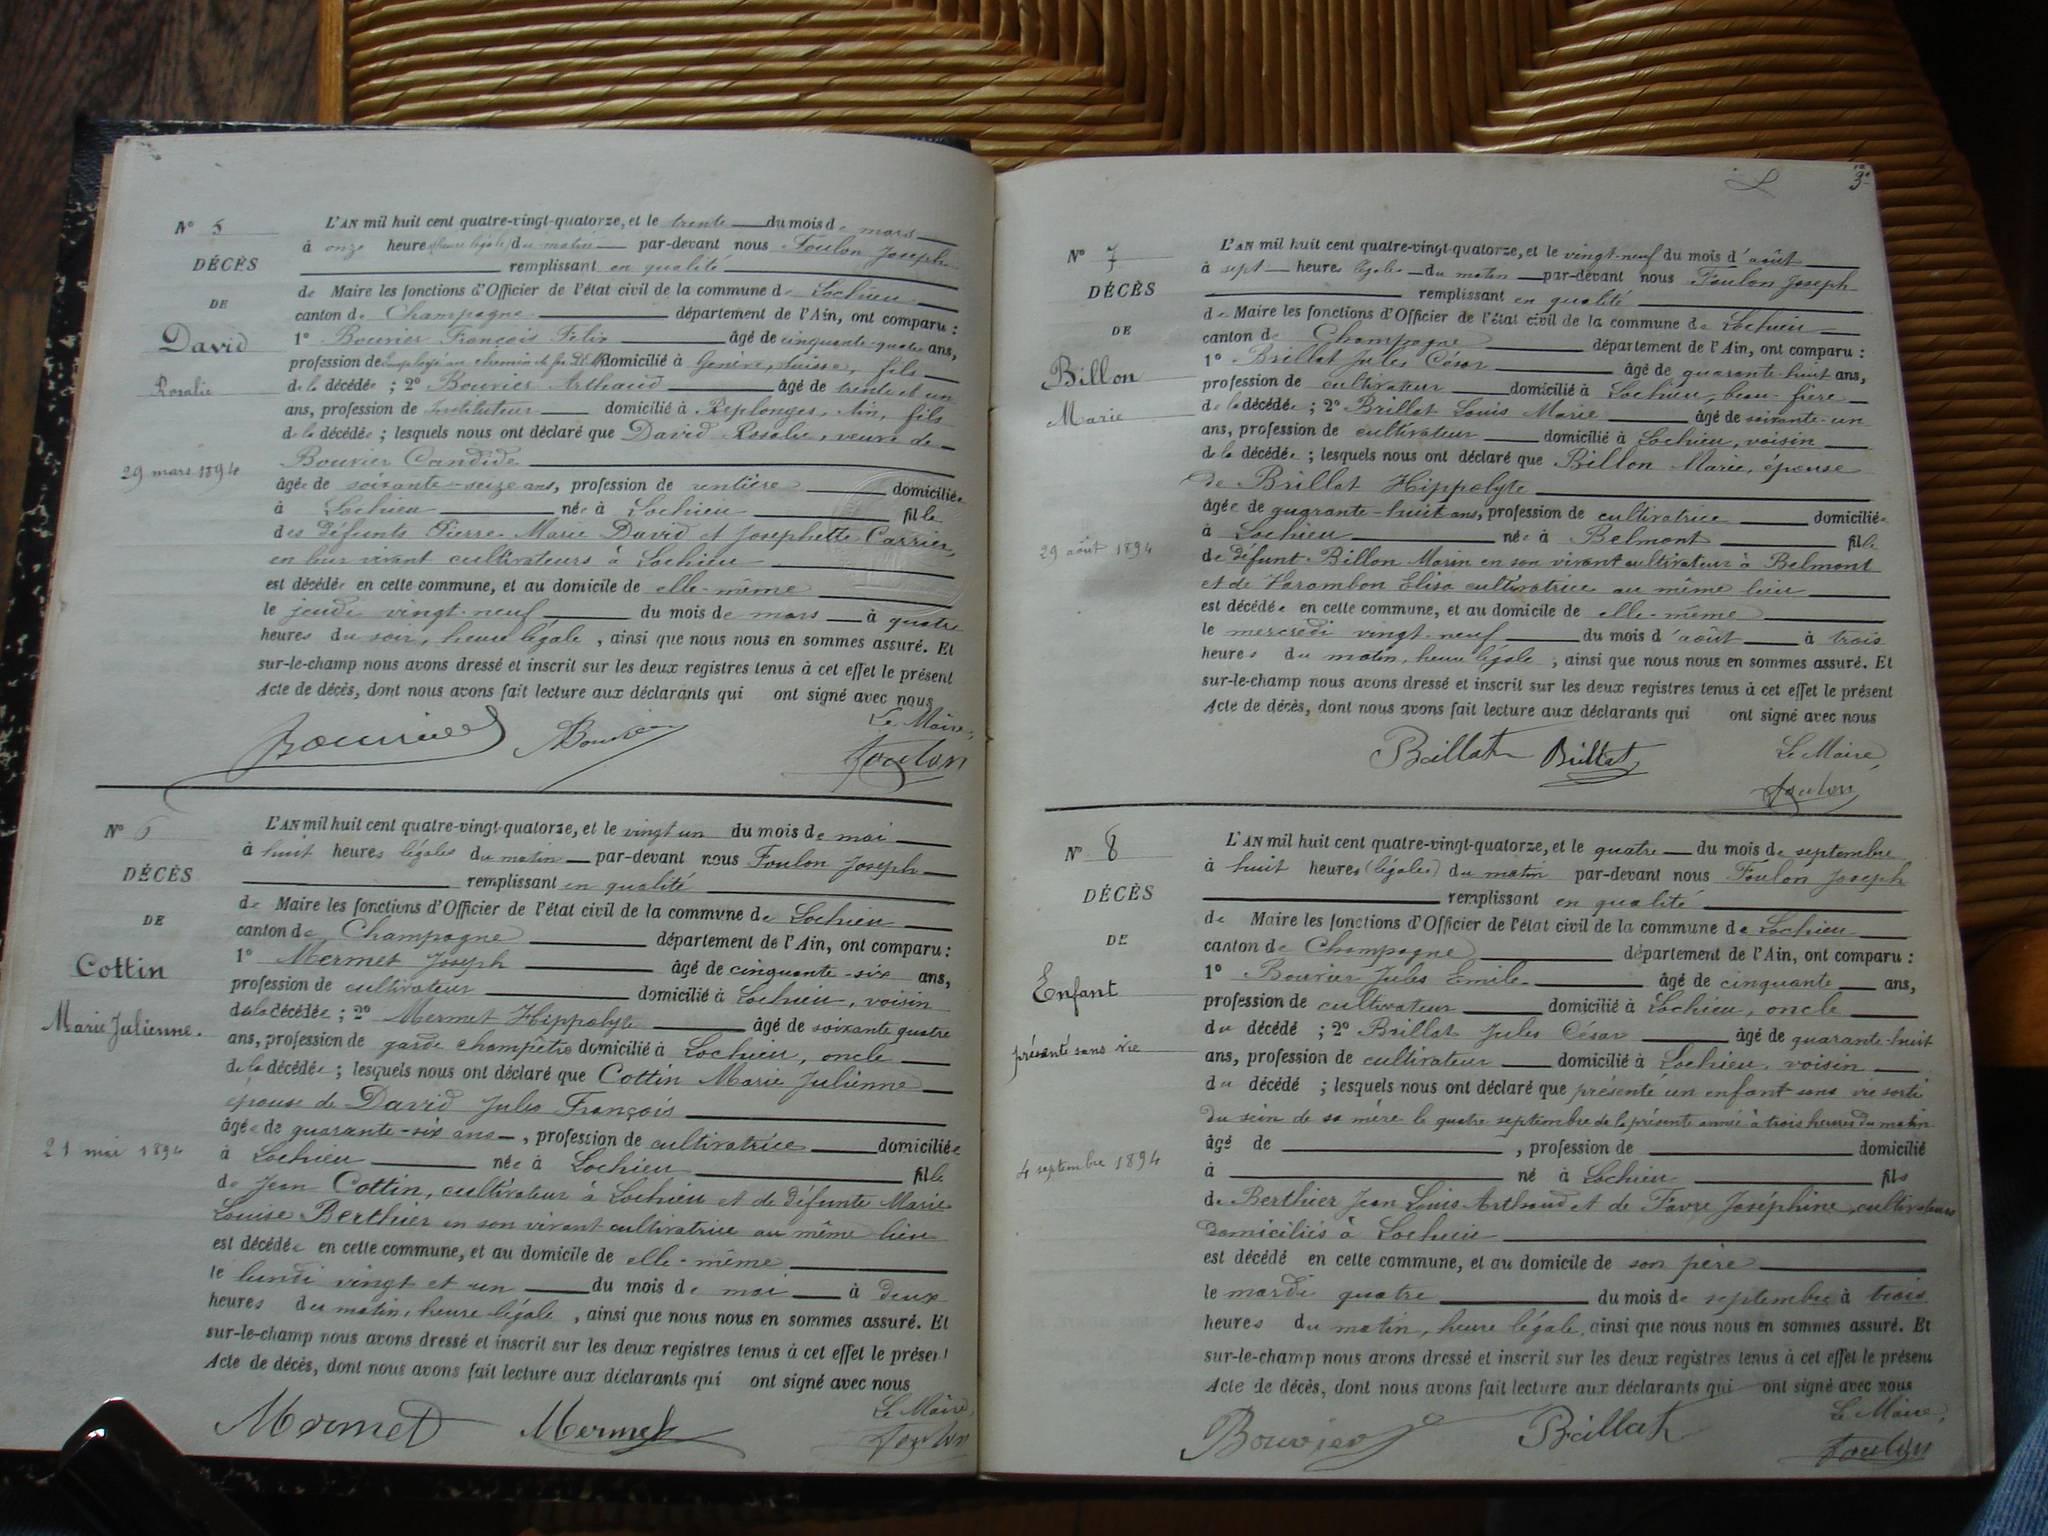 N° 5
DÉCÈS
DE
David
Rosalie
29 mars 1894
L'AN mil huit cent quatre-vingt-quatorze, et le trente du mois de mars
à onze heures (heure légale) du matin par-devant nous Foulon Joseph
remplissant en qualité
de Maire les fonctions d'Officier de l'état civil de la commune de Lochieu
canton de Champagne département de l'Ain, ont comparu :
1° Bouvier François Félix âgé de cinquante-quatre ans,
profession de employé au chemin de fer domicilié à Genève, Suisse, fils
de la décédée ; 2° Bouvier Arthaud âgé de trente et un
ans, profession de Instituteur domicilié à Replonges, Ain, fils
de la décédée ; lesquels nous ont déclaré que David Rosalie, veuve de
Bouvier Candide
âgée de soixante-seize ans, profession de rentière domiciliée
à Lochieu née à Lochieu fille
des défunts Pierre-Marie David et Josephette Carrier,
en leur vivant cultivateurs à Lochieu
est décédée en cette commune, et au domicile de elle-même
le jeudi vingt-neuf du mois de mars à quatre
heures du soir, heure légale, ainsi que nous nous en sommes assuré. Et
sur-le-champ nous avons dressé et inscrit sur les deux registres tenus à cet effet le présent
Acte de décès, dont nous avons fait lecture aux déclarants qui ont signé avec nous
Le Maire,
Bouvier ABouvier Foulon
N° 6
DÉCÈS
DE
Cottin
Marie Julienne.
21 mai 1894
L'AN mil huit cent quatre-vingt-quatorze, et le vingt un du mois de mai
à huit heures légales du matin par-devant nous Foulon Joseph
remplissant en qualité
de Maire les fonctions d'Officier de l'état civil de la commune de Lochieu
canton de Champagne département de l'Ain, ont comparu :
1° Mermet Joseph âgé de cinquante-six ans,
profession de cultivateur domicilié à Lochieu, voisin
de la décédée ; 2° Mermet Hippolyte âgé de soixante quatre
ans, profession de garde champêtre domicilié à Lochieu, oncle
de la décédée ; lesquels nous ont déclaré que Cottin Marie Julienne
épouse de David Jules François
âgée de quarante-six ans, profession de cultivatrice domiciliée
à Lochieu née à Lochieu fille
de Jean Cottin, cultivateur à Lochieu et de défunte Marie
Louise Berthier en son vivant cultivatrice au même lieu
est décédée en cette commune, et au domicile de elle-même
le lundi vingt et un du mois de mai à deux
heures du matin, heure légale, ainsi que nous nous en sommes assuré. Et
sur-le-champ nous avons dressé et inscrit sur les deux registres tenus à cet effet le présent
Acte de décès, dont nous avons fait lecture aux déclarants qui ont signé avec nous
Le Maire,
Mermet Mermet Foulon
3e
N° 7
DÉCÈS
DE
Billon
Marie
29 août 1894
L'AN mil huit cent quatre-vingt-quatorze, et le vingt-neuf du mois d'août
à sept heures légales du matin par-devant nous Foulon Joseph
remplissant en qualité
de Maire les fonctions d'Officier de l'état civil de la commune de Lochieu
canton de Champagne département de l'Ain, ont comparu :
1° Brillat Jules César âgé de quarante-huit ans,
profession de cultivateur domicilié à Lochieu, beau-frère
de la décédée ; 2° Brillat Louis Marie âgé de soixante-un
ans, profession de cultivateur domicilié à Lochieu, voisin
de la décédée ; lesquels nous ont déclaré que Billon Marie, épouse
de Brillat Hippolyte
âgée de quarante-huit ans, profession de cultivatrice domiciliée
à Lochieu née à Belmont fille
de défunt Billon Marin en son vivant cultivateur à Belmont
et de Varambon Elisa cultivatrice au même lieu
est décédée en cette commune, et au domicile de elle-même
le mercredi vingt-neuf du mois d'août à trois
heures du matin, heure légale, ainsi que nous nous en sommes assuré. Et
sur-le-champ nous avons dressé et inscrit sur les deux registres tenus à cet effet le présent
Acte de décès, dont nous avons fait lecture aux déclarants qui ont signé avec nous
Brillat Brillat Le Maire,
Foulon
N° 8
DÉCÈS
DE
Enfant
présenté sans vie
4 septembre 1894
L'AN mil huit cent quatre-vingt-quatorze, et le quatre du mois de septembre
à huit heures (légales) du matin par-devant nous Foulon Joseph
remplissant en qualité
de Maire les fonctions d'Officier de l'état civil de la commune de Lochieu
canton de Champagne département de l'Ain, ont comparu :
1° Bouvier Jules Emile âgé de cinquante ans,
profession de cultivateur domicilié à Lochieu, oncle
du décédé ; 2° Brillat Jules César âgé de quarante-huit
ans, profession de cultivateur domicilié à Lochieu, voisin
du décédé ; lesquels nous ont déclaré que présenté un enfant sans vie sorti
du sein de sa mère le quatre septembre de la présente année à trois heures du matin
âgé de , profession de domicilié
à né à Lochieu fils
de Berthier Jean Louis Arthaud et de Favre Joséphine, cultivateurs
domiciliés à Lochieu
est décédé en cette commune, et au domicile de son père
le mardi quatre du mois de septembre à trois
heures du matin, heure légale, ainsi que nous nous en sommes assuré. Et
sur-le-champ nous avons dressé et inscrit sur les deux registres tenus à cet effet le présent
Acte de décès, dont nous avons fait lecture aux déclarants qui ont signé avec nous
Le Maire,
Bouvier Brillat Foulon